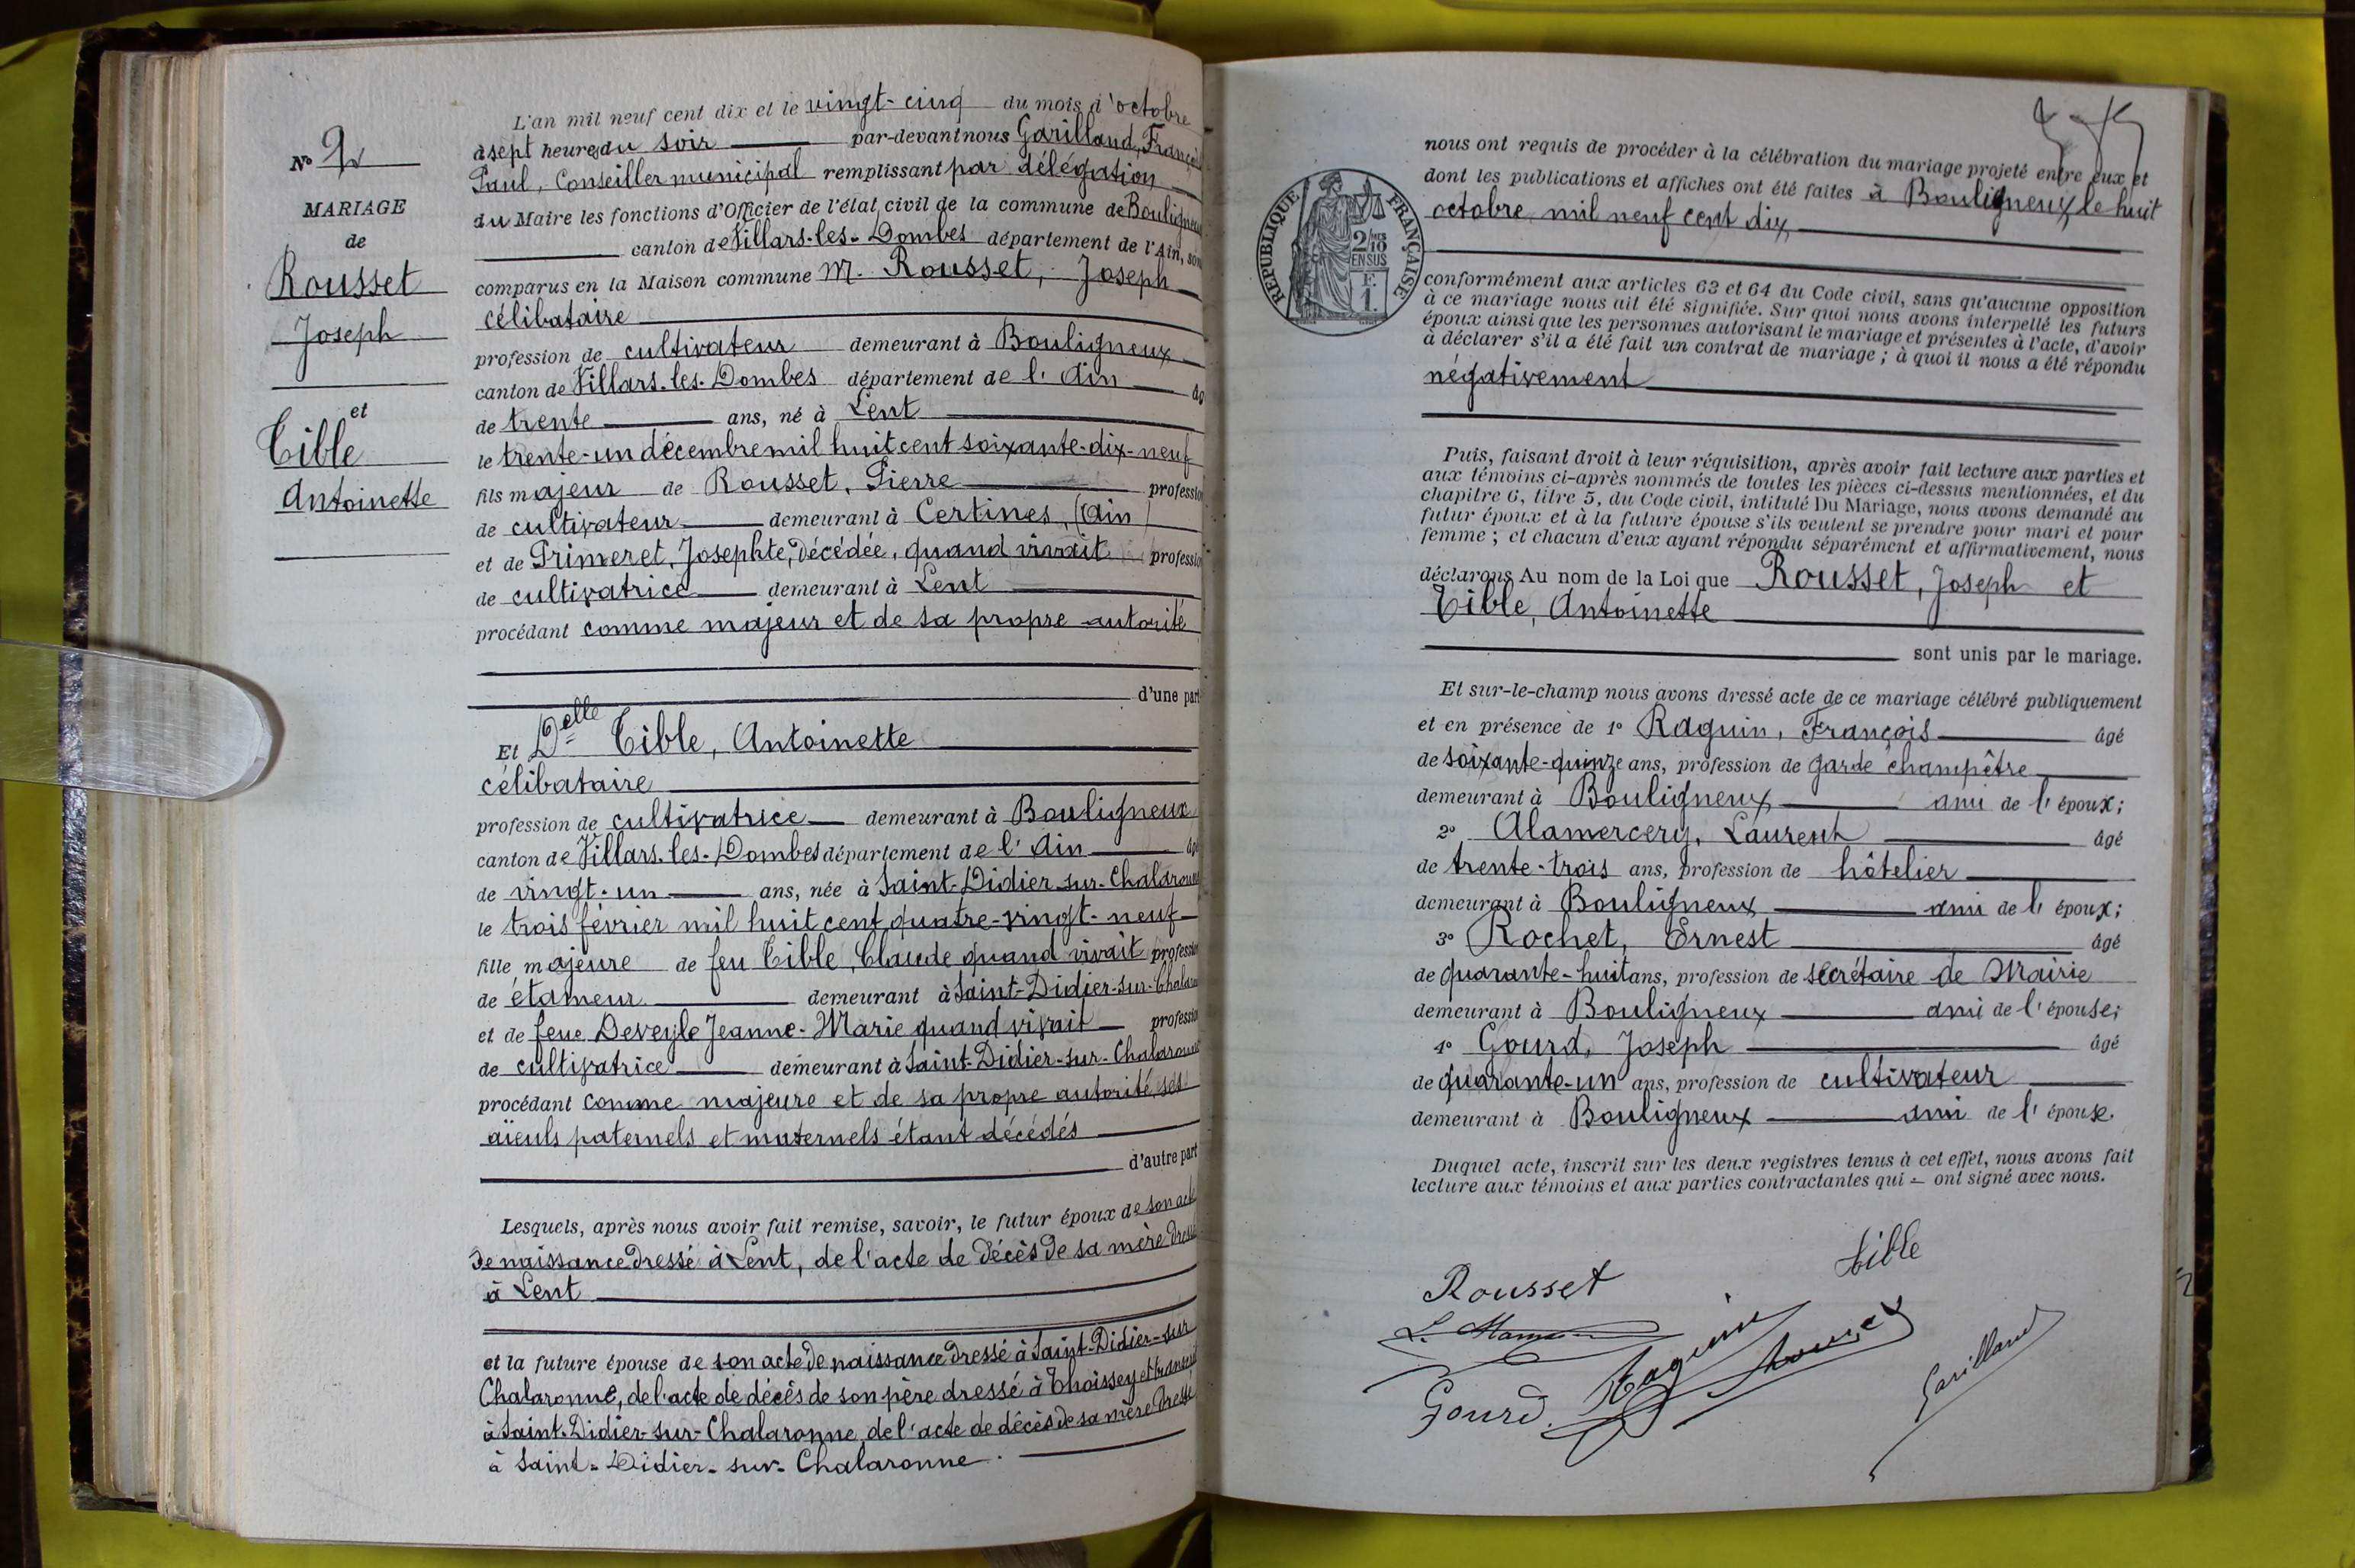 L'an mil neuf cent dix et le vingt-cinq du mois d'octobre
à sept heures du soir par-devant nous Garilland, François
Paul, Conseiller municipal remplissant par délégation
du Maire les fonctions d'Officier de l'état civil de la commune de Bouligneux
canton de Villars-les-Dombes département de l'Ain, sont
comparus en la Maison commune M. Rousset, Joseph
célibataire
profession de cultivateur demeurant à Bouligneux
canton de Villars-les-Dombes département de l'Ain âgé
de trente ans, né à Lent
le trente-un décembre mil huit cent soixante-dix-neuf
fils majeur de Rousset, Pierre profession
de cultivateur demeurant à Certines, (Ain)
et de Primeret, Josephte, décédée, quand vivait profession
de cultivatrice demeurant à Lent
procédant comme majeur et de sa propre autorité
d'une part
Et Delle Tible, Antoinette
célibataire
profession de cultivatrice demeurant à Bouligneux
canton de Villars-les-Dombes département de l'Ain âgé
de vingt-un ans, née à Saint-Didier-sur-Chalaronne
le trois février mil huit cent quatre-vingt-neuf
fille majeure de feu Tible, Claude quand vivait profession
de étameur demeurant à Saint-Didier-sur-Chalaronne
et de feue Deveyle Jeanne-Marie quand vivait profession
de cultivatrice demeurant à Saint-Didier-sur-Chalaronne
procédant comme majeure et de sa propre autorité, ses
aïeuls paternels et maternels étant décédés
d'autre part
Lesquels, après nous avoir fait remise, savoir, le futur époux de son acte
de naissance dressé à Lent, de l'acte de décès de sa mère dressé
à Lent
et la future épouse de son acte de naissance dressé à Saint-Didier-sur
Chalaronne, de l'acte de décès de son père dressé à Thoissey et transcrit
à Saint-Didier-sur-Chalaronne, de l'acte de décès de sa mère dressé
à Saint-Didier-sur-Chalaronne.
N° 2
MARIAGE
de
Rousset
Joseph
et
Tible
Antoinette
nous ont requis de procéder à la célébration du mariage projeté entre eux et
dont les publications et affiches ont été faites à Bouligneux le huit
octobre mil neuf cent dix
RÉPUBLIQUE FRANÇAISE
2/10
EN SUS
F.
1.
conformément aux articles 63 et 64 du Code civil, sans qu'aucune opposition
à ce mariage nous ait été signifiée. Sur quoi nous avons interpellé les futurs
époux ainsi que les personnes autorisant le mariage et présentes à l'acte, d'avoir
à déclarer s'il a été fait un contrat de mariage ; à quoi il nous a été répondu
négativement
Puis, faisant droit à leur réquisition, après avoir fait lecture aux parties et
aux témoins ci-après nommés de toutes les pièces ci-dessus mentionnées, et du
chapitre 6, titre 5, du Code civil, intitulé Du Mariage, nous avons demandé au
futur époux et à la future épouse s'ils veulent se prendre pour mari et pour
femme ; et chacun d'eux ayant répondu séparément et affirmativement, nous
déclarons Au nom de la Loi que Rousset, Joseph et
Tible, Antoinette
sont unis par le mariage.
Et sur-le-champ nous avons dressé acte de ce mariage célébré publiquement
et en présence de 1° Raguin, François âgé
de soixante-quinze ans, profession de garde champêtre
demeurant à Bouligneux ami de l'époux;
2° Alamercery, Laurent âgé
de trente-trois ans, profession de hôtelier
demeurant à Bouligneux ami de l'époux;
3° Rochet, Ernest âgé
de quarante-huit ans, profession de secrétaire de Mairie
demeurant à Bouligneux ami de l'épouse;
4° Gourd, Joseph âgé
de quarante-un ans, profession de cultivateur
demeurant à Bouligneux ami de l'épouse.
Duquel acte, inscrit sur les deux registres tenus à cet effet, nous avons fait
lecture aux témoins et aux parties contractantes qui ont signé avec nous.
Tible
Rousset
Raguin
Gourd.
Garilland